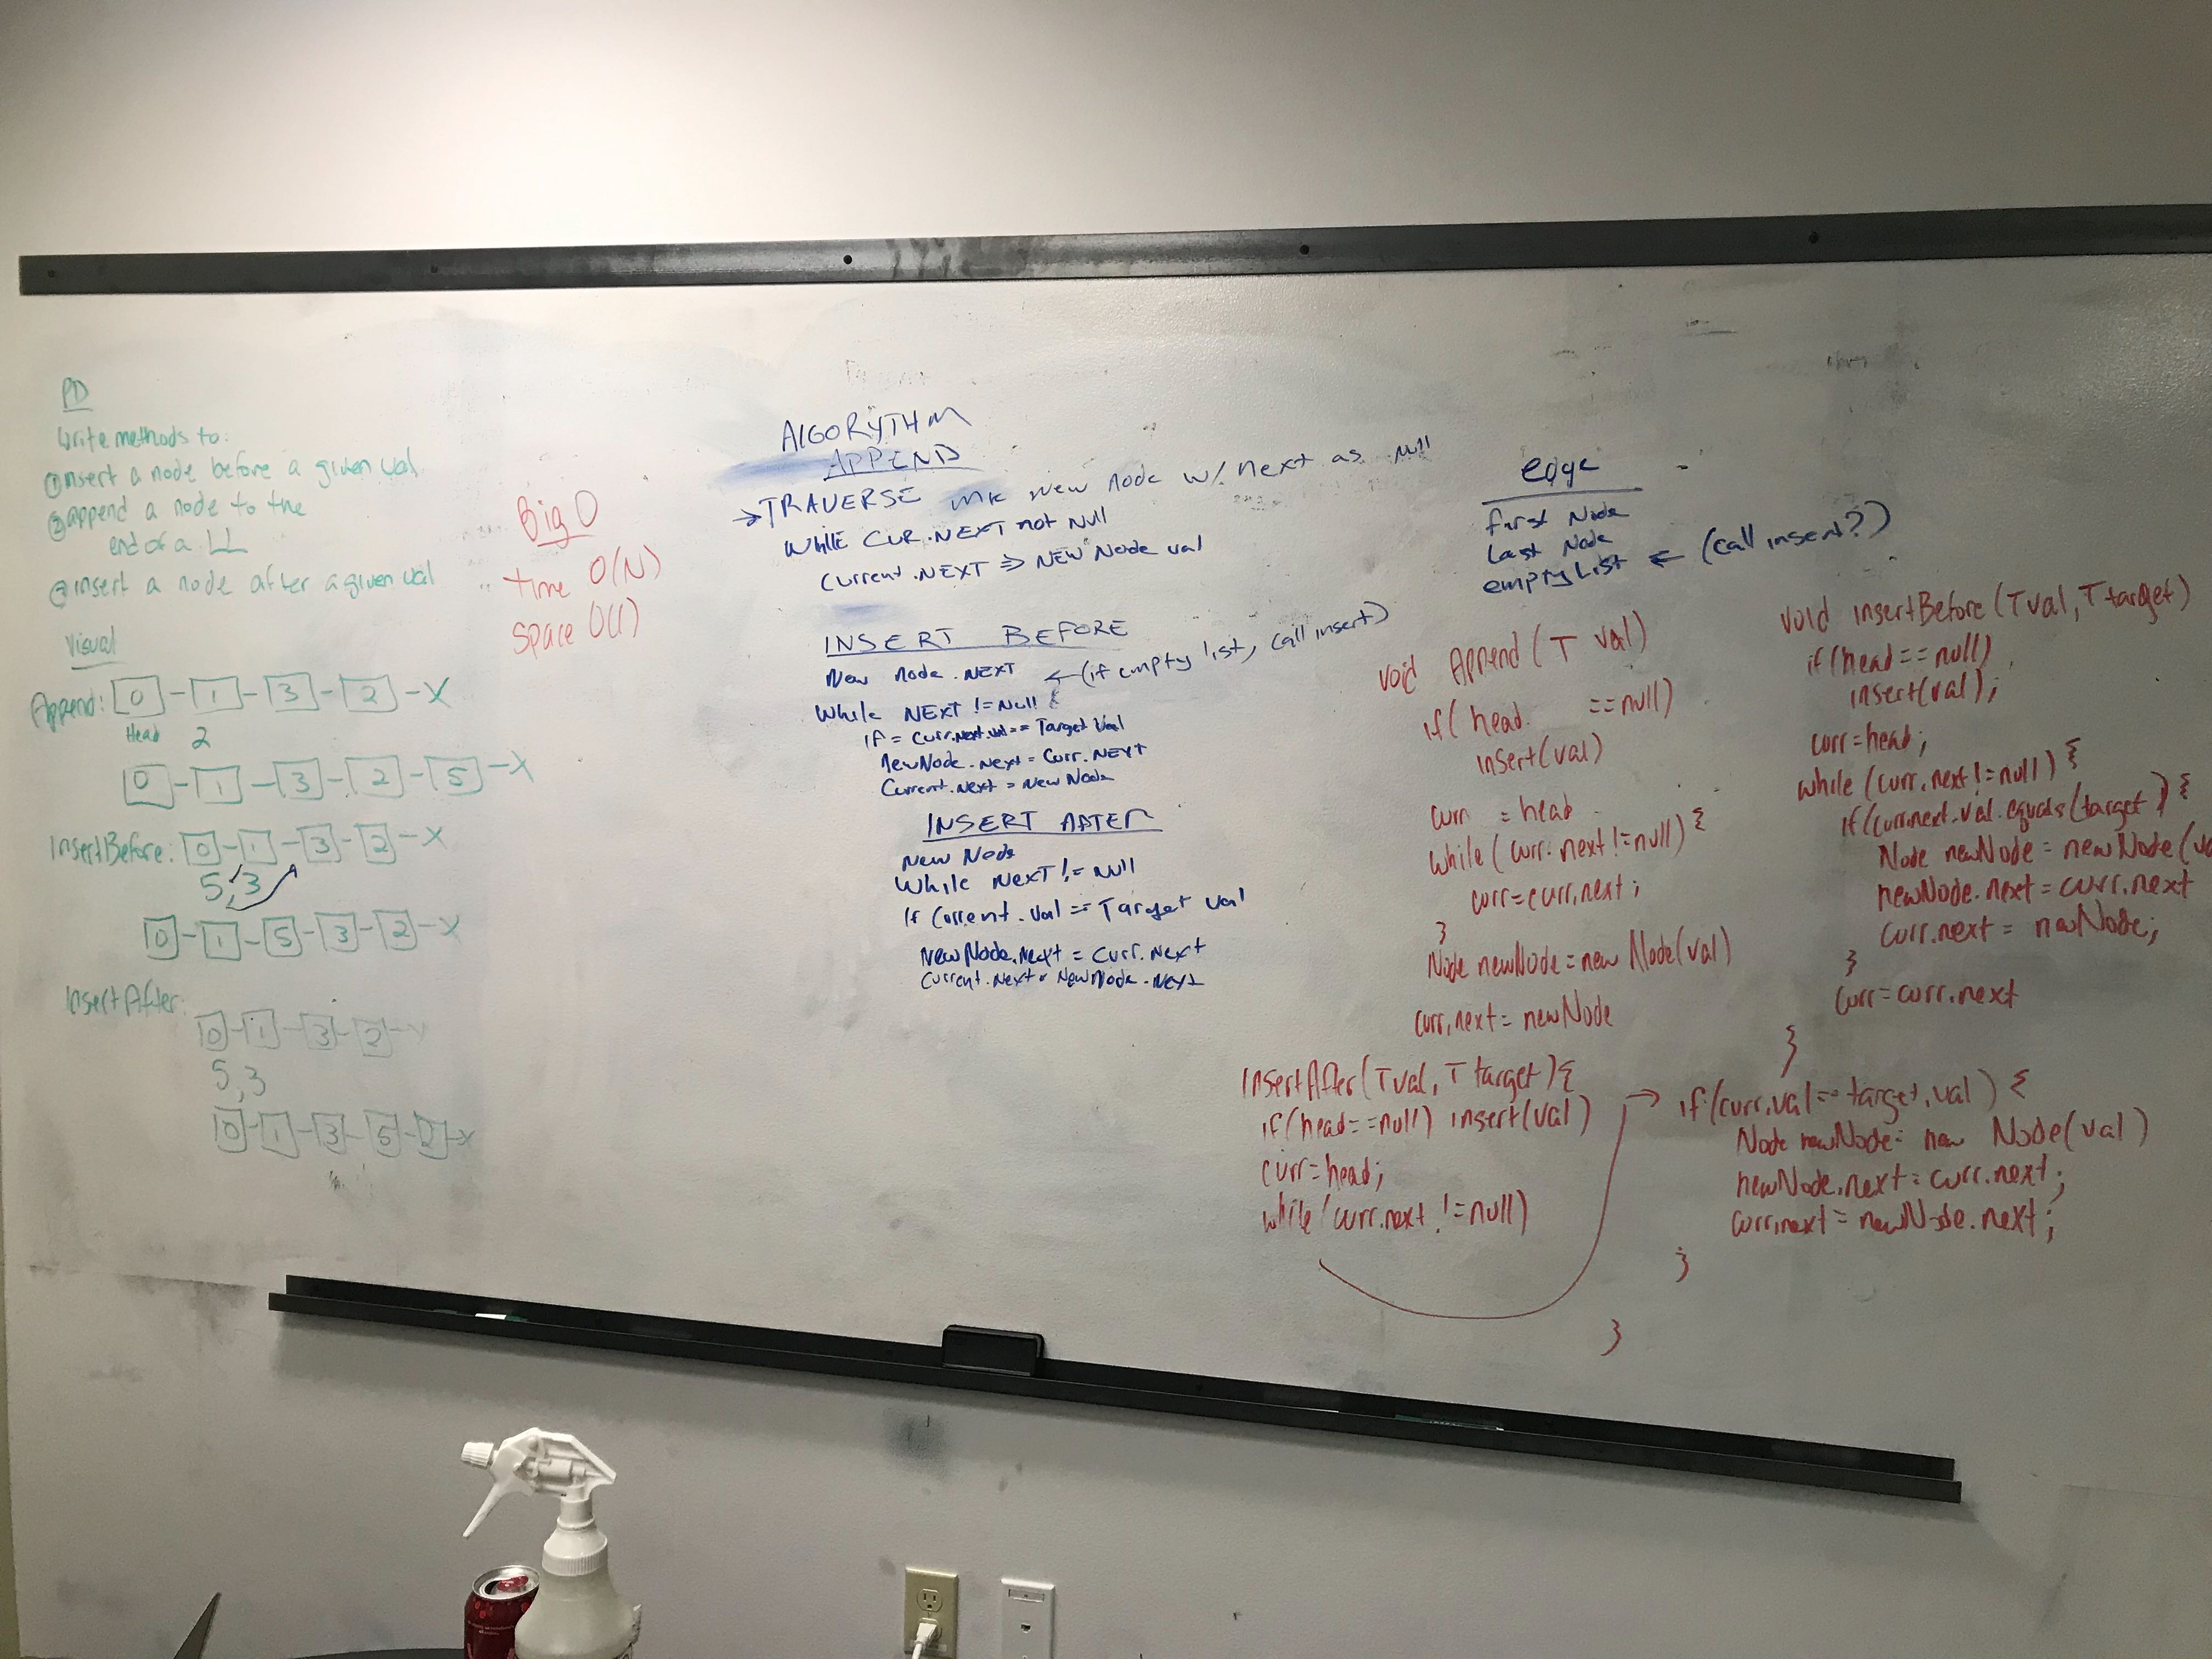 PD
Write methods to:
① insert a node before a given val
② append a node to the
end of a LL
③ insert a node after a given val
Visual
Append: 0 - 1 - 3 - 2 - X
Head 2
0 - 1 - 3 - 2 - 5 - X
InsertBefore: 0 - 1 - 3 - 2 - X
5, 3
0 - 1 - 5 - 3 - 2 - X
InsertAfter:
0 - 1 - 3 - 2 - X
5, 3
0 - 1 - 3 - 5 - 2 - X
Big O
time O(N)
space O(1)
ALGORYTHM
APPEND
→ TRAVERSE mk New node w/ next as null
While CUR.NEXT not Null
Current.NEXT ⇒ NEW Node val
INSERT BEFORE
New node.NEXT ← (if empty list, call insert)
While NEXT != Null {
IF = Curr.next.val == Target Val
NewNode.Next = Curr.NEXT
Current.next = New Node
INSERT AFTER
New Node
While NEXT != Null
If Current.val == Target val
NewNode.Next = Curr.Next
Current.Next = NewNode.Next
edge
first Node
Last Node
empty List ← (call insert?)
void Append(T val)
if(head ==null)
insert(val)
curr = head
while(curr.next!=null){
curr=curr.next;
}
Node newNode=new Node(val)
curr.next=newNode
InsertAfter(T val, T target){
if(head==null) insert(val)
curr=head;
while(curr.next!=null)
void insertBefore(T val, T target)
if(head==null)
insert(val);
curr=head;
while(curr.next!=null){
if(curr.next.val.equals(target){
Node newNode = newNode(va
newNode.next=curr.next
curr.next = newNode;
}
curr=curr.next
}
→ if(curr.val==target.val){
Node newNode= new Node(val)
newNode.next=curr.next;
curr.next=newNode.next;
}
}